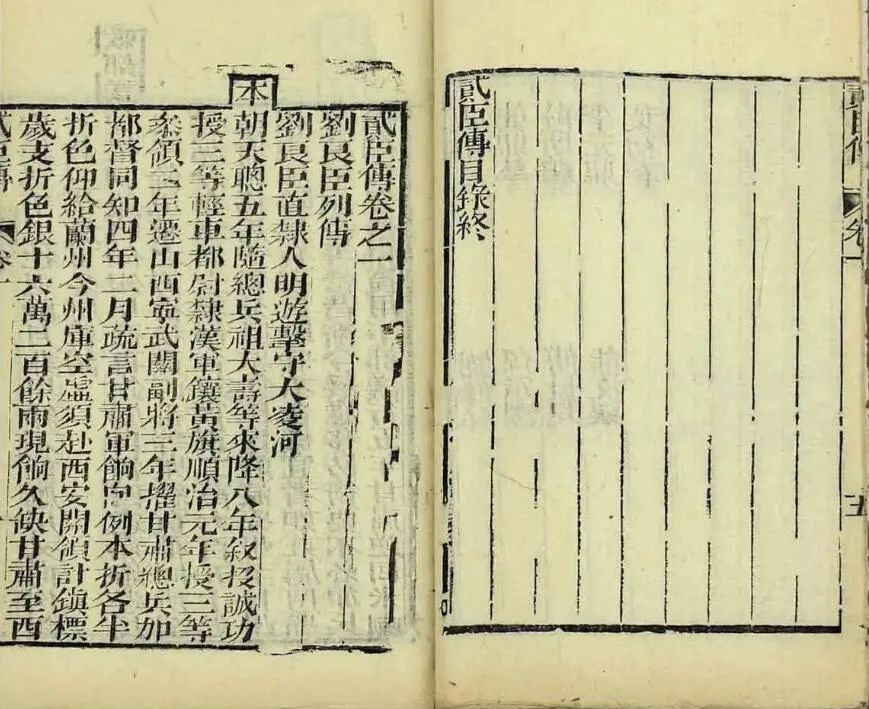 貳臣傳 卷一 五
貳臣傳目錄終
貳臣傳卷之一
劉良臣列傳
劉良臣直隸人明遊擊守大凌河
本朝天聰五年隨總兵祖大壽等來降八年敘投誠功
授三等輕車都尉隸漢軍鑲黃旗順治元年授三等
叅領二年遷山西寧武關副將三年擢甘肅總兵加
都督同知四年二月疏言甘肅軍餉向例本折各半
折色仰給蘭州今州庫空虛須赴西安關領計鎮標
歲支折色銀十六萬二百餘兩現餉久缺甘肅至西
貳臣傳 卷一